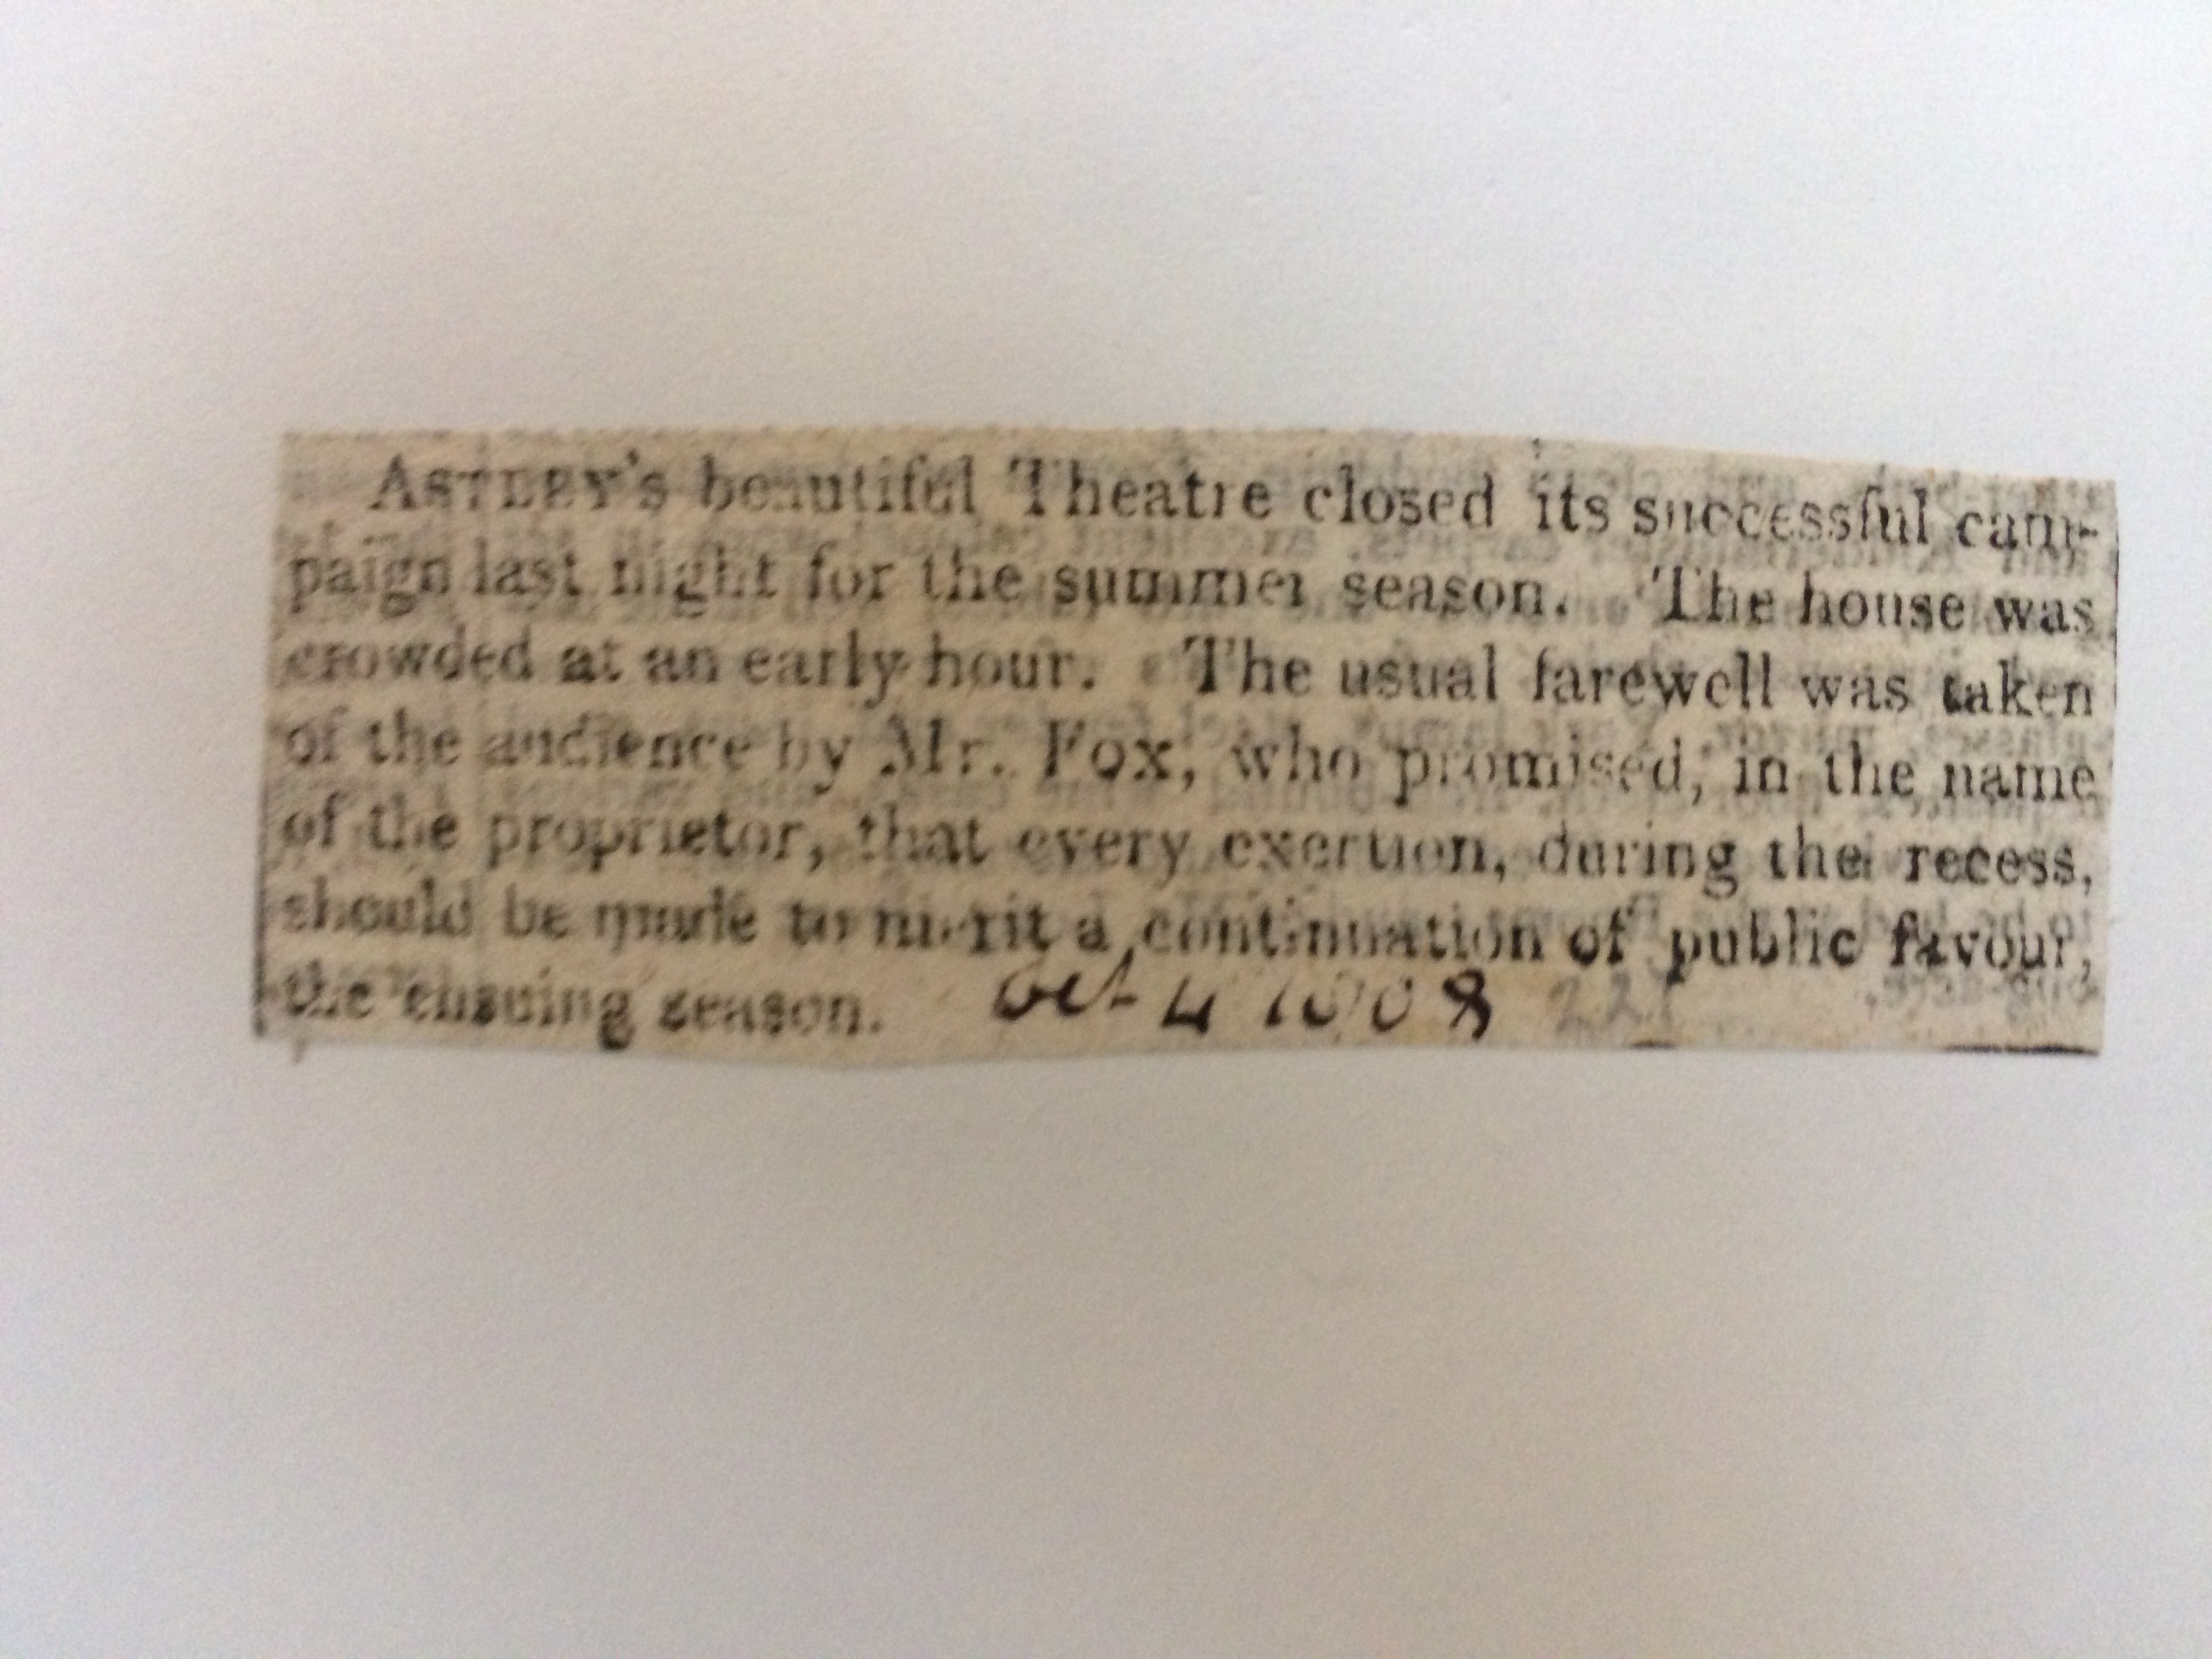 ASTLEY's beautiful Theatre closed its successful cam-
paign last night for the summer season. The house was
crowded at an early hour. The usual farewell was taken
of the audience by Mr. Fox, who promised, in the name
of the proprietor, that every exertion, during the recess,
should be made to merit a continuation of public favour,
the ensuing season. Oct 4 1808